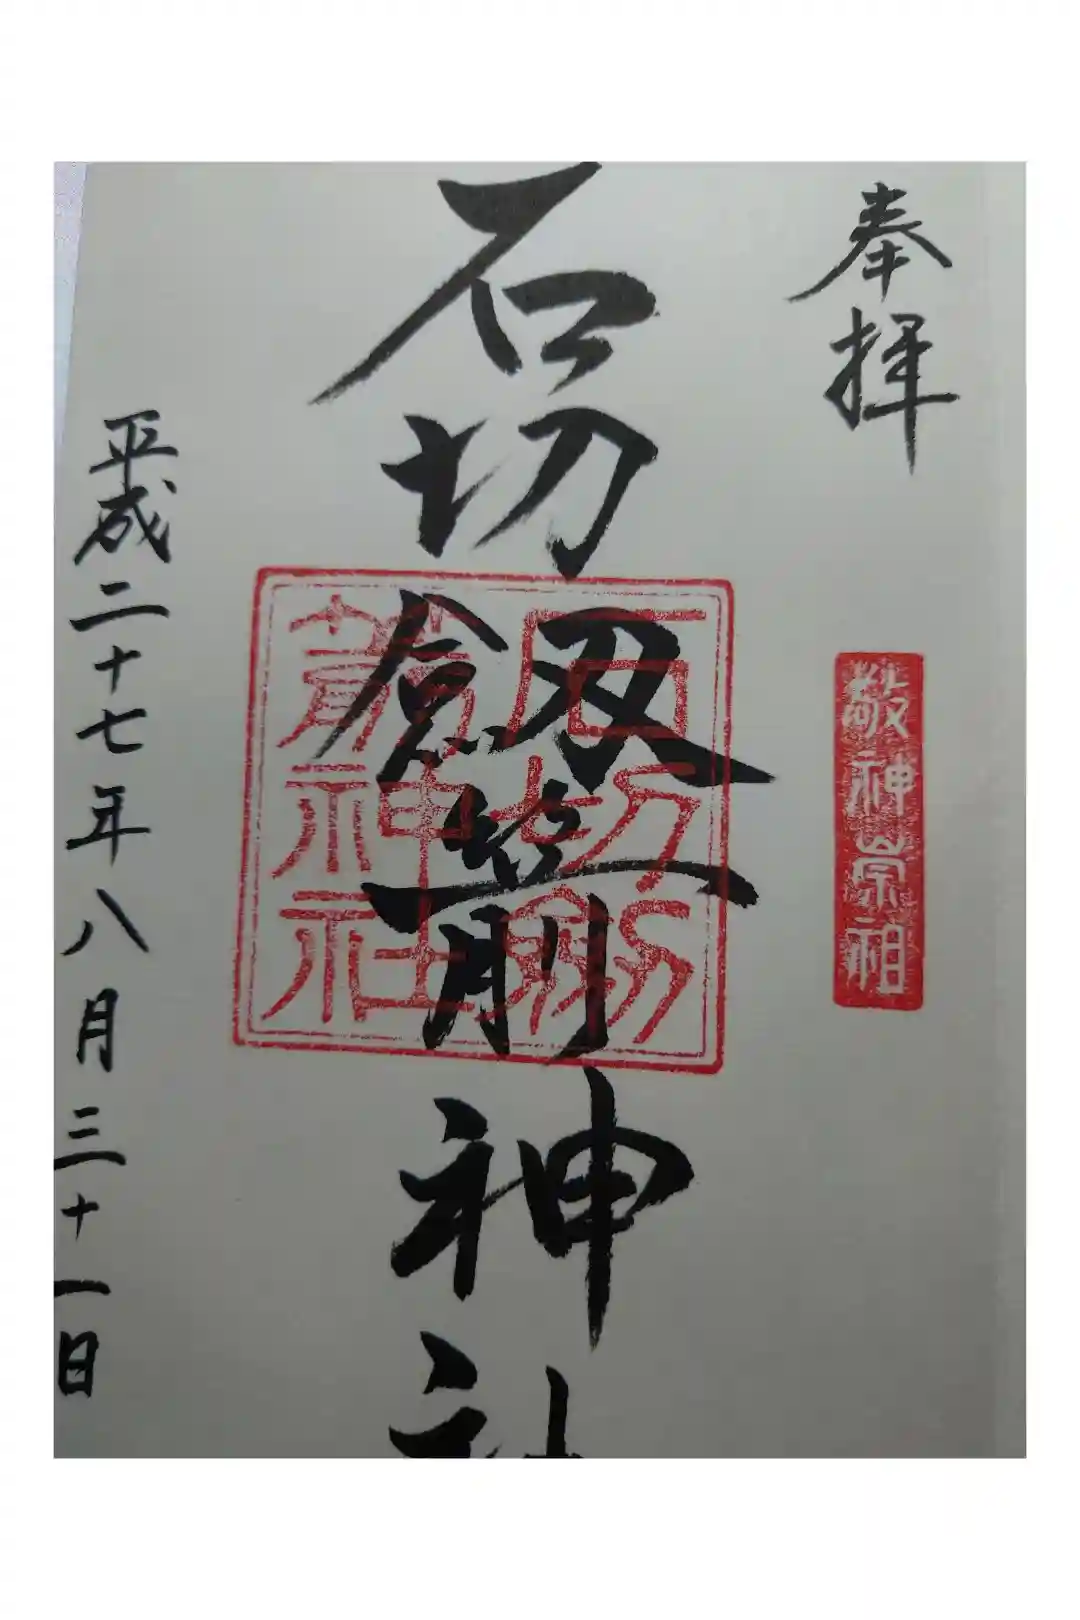 奉拝
敬神崇祖
石切劒箭神社
石切劒
箭神社
平成二十七年八月三十一日